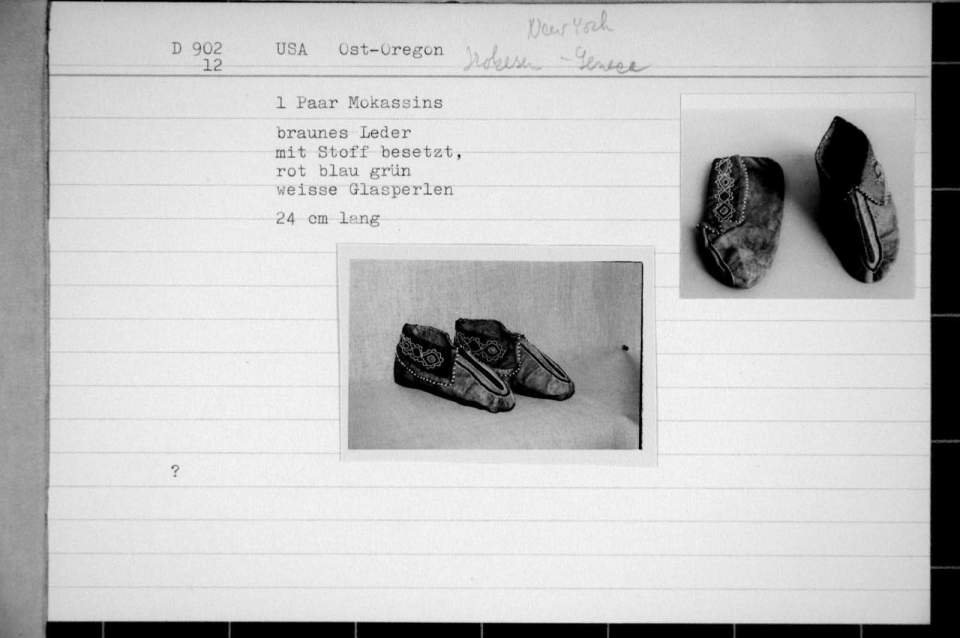 New York
D 902 USA Ost-Oregon Irokesen - Seneca
12
1 Paar Mokassins
braunes Leder
mit Stoff besetzt,
rot blau grün
weisse Glasperlen
24 cm lang
?